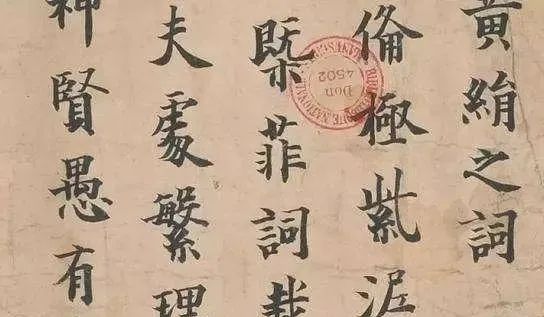 黃絹之詞
俻極紫泥
既菲詞
夫處繁理
神賢愚有
BIBLIOTHEQUE NATIONALE MANUSCRITS
Don
4502